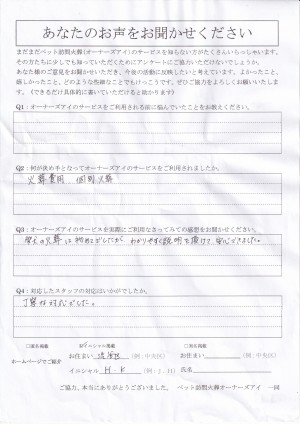 あなたのお声をお聞かせください
まだまだペット訪問火葬(オーナーズアイ)のサービスを知らない方がたくさんいらっしゃいます。
その方たちに少しでも知っていただくためにアンケートにご協力いただけないでしょうか。
あなた様のご意見をお聞かせいただき、今後の活動に反映したいと考えています。よかったこと、
嬉しかったこと、どのような些細なことでもけっこうです。ぜひご協力をよろしくお願いいたします。
(できるだけ具体的に書いていただけると助かります)
Q1:オーナーズアイのサービスをご利用される前に悩んでいたことをお教えください。
Q2:何が決め手となってオーナーズアイのサービスをご利用されましたか。
火葬費用 個別火葬
Q3:オーナーズアイのサービスを実際にご利用なさってみての感想をお聞かせください。
愛犬の火葬は初めてでしたが、わかりやすく説明を頂けて、安心できました。
Q4:対応したスタッフの対応はいかがでしたか。
丁寧な対応でした。
□実名掲載 イニシャル掲載 □匿名掲載
ホームページでご紹介
お住まい (例:中央区) お住まい (例:中央区)
イニシャル H・K (例:J.H) 氏名
ご協力、本当にありがとうございました。 ペット訪問火葬オーナーズアイ 一同